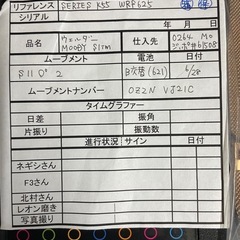 リファレンス SERIES K55 WRP625
シリアル 年 月 日
品名 ウェルダー MOODY SLIM 仕入先 0264 Mo
ムーブメント 電池 日付
B吹替(621) 6/28
ムーブメントナンバー VJ21C
タイムグラファー
日差 振角
片振り 振動数
進行状況 サイン 日付
ネギシさん
F3さん
北村さん
レオン磨き
写真撮り